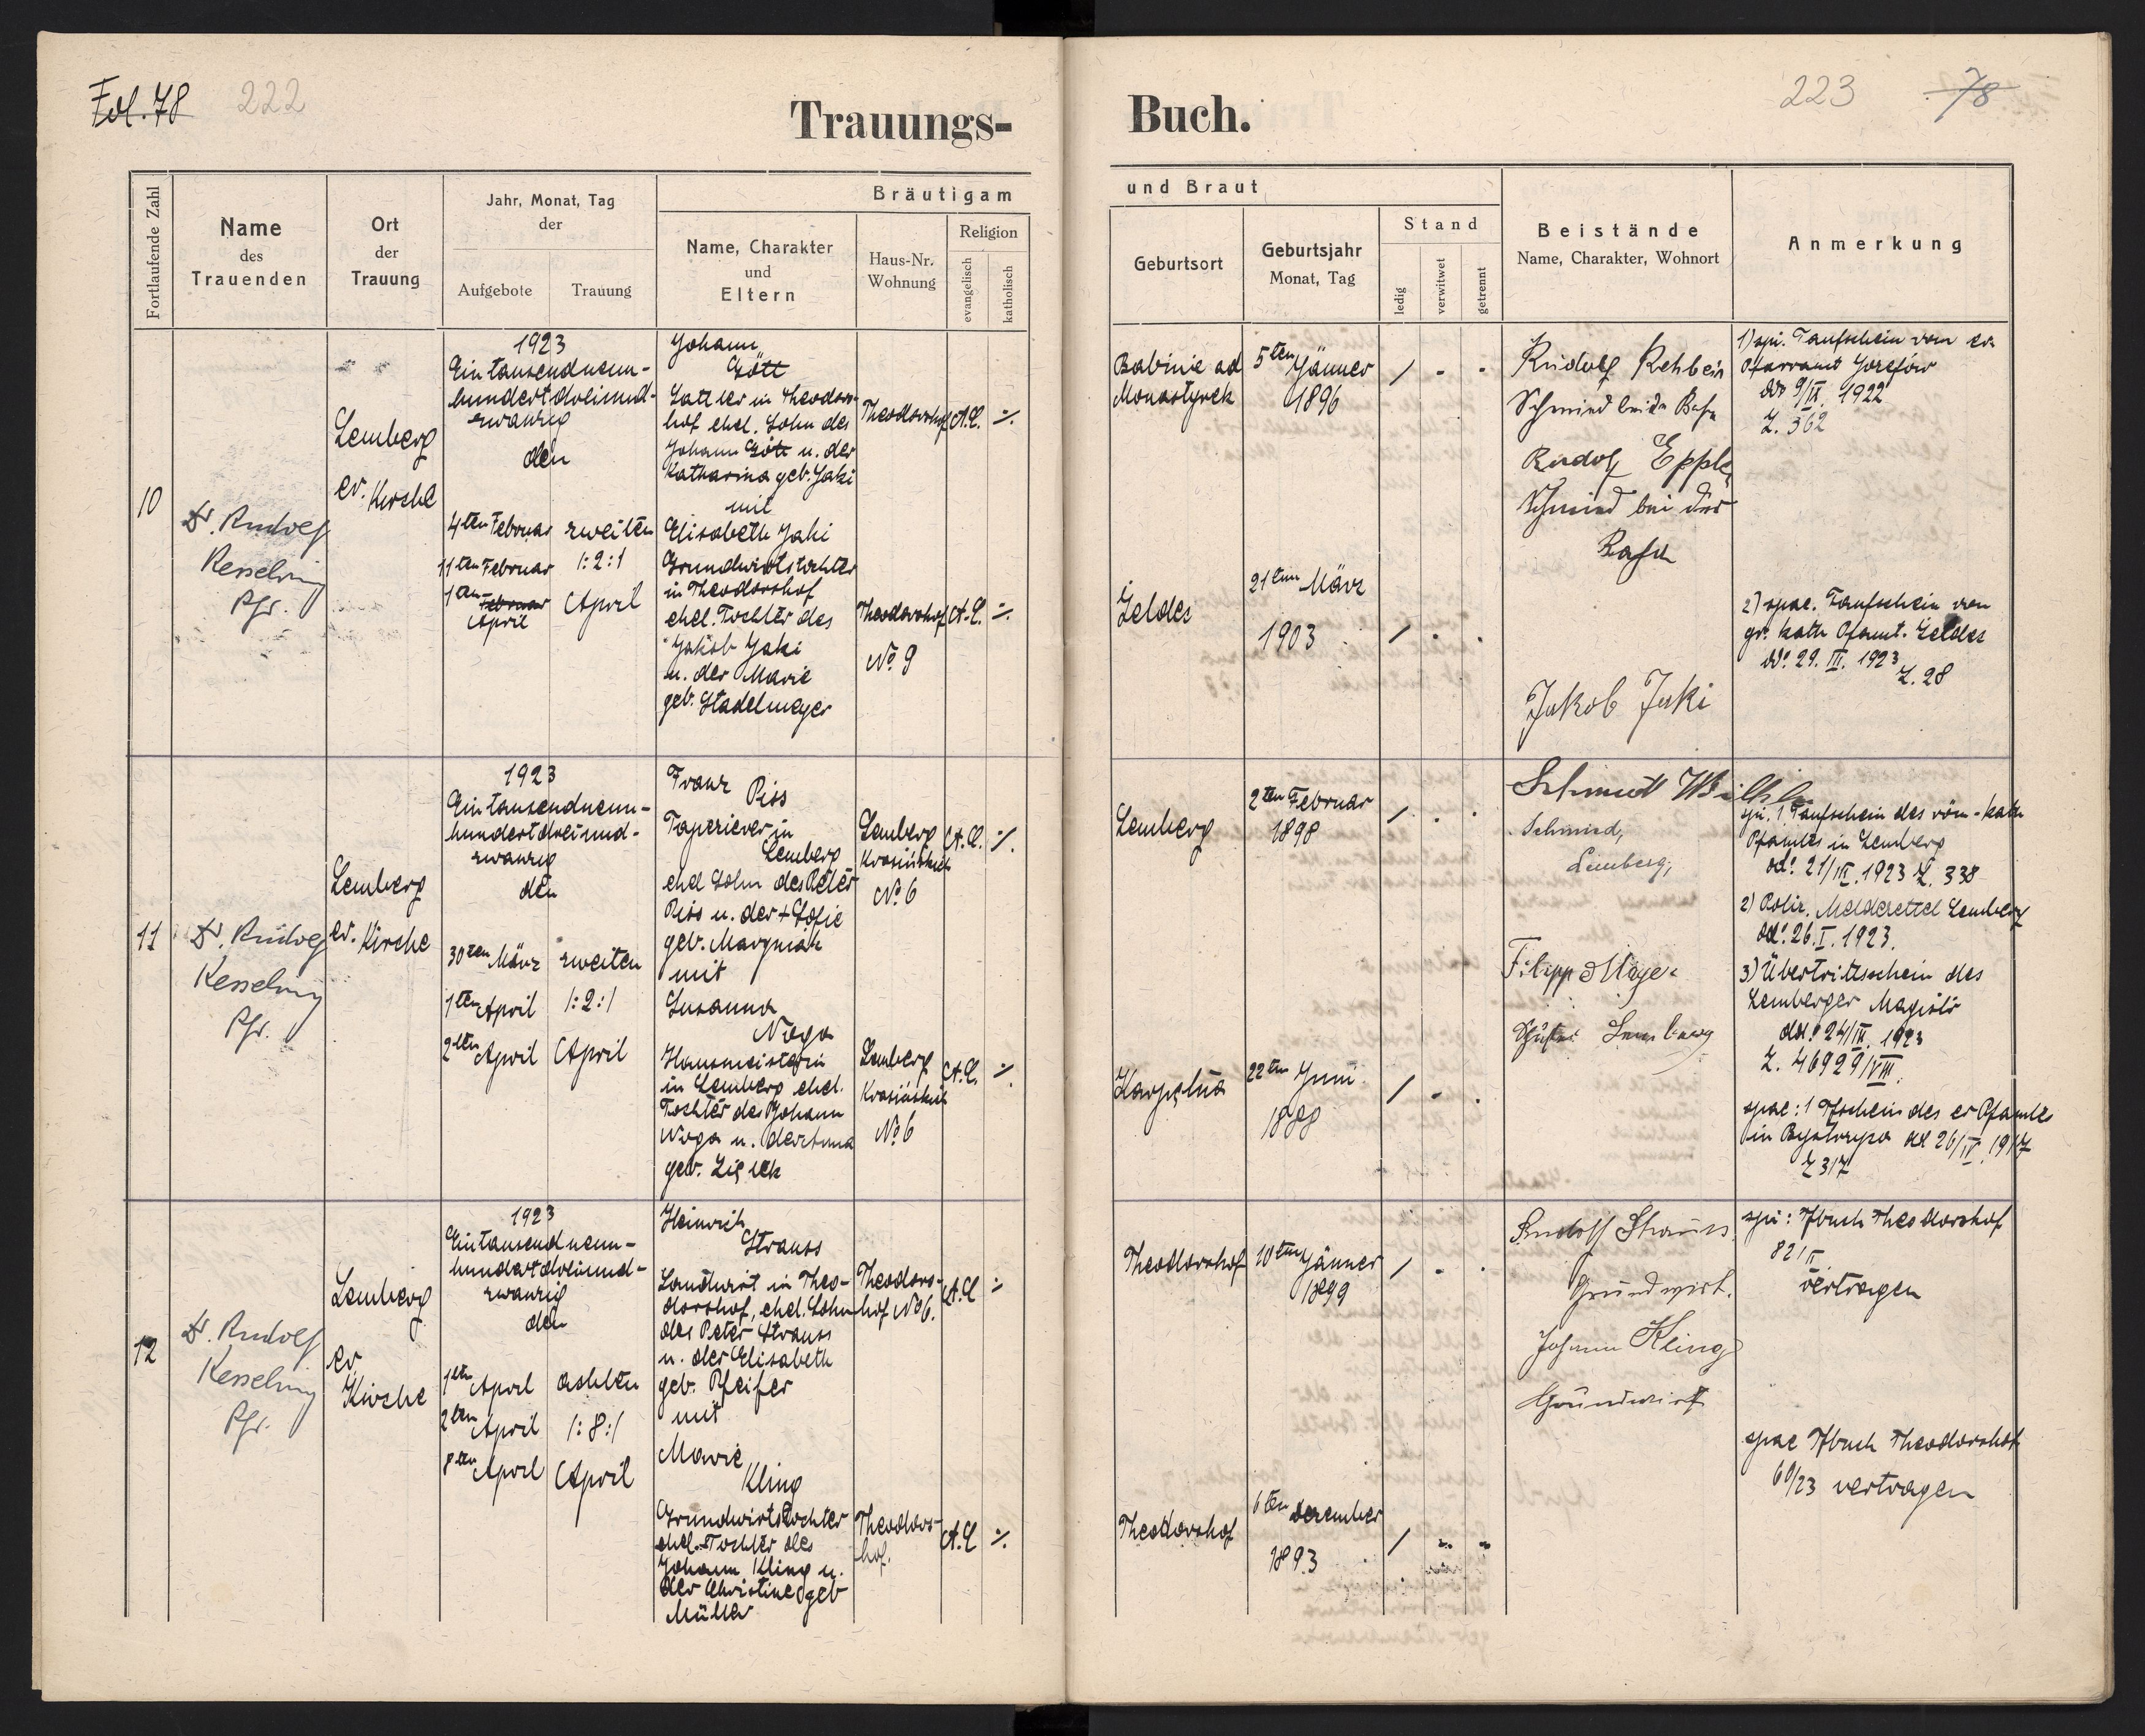 Fol. 78 222
Trauungs-
Fortlaufende Zahl
Name
des
Trauenden
Ort
der
Trauung
Jahr, Monat, Tag
der
Aufgebote
Trauung
Bräutigam
Name, Charakter
und
Eltern
Haus-Nr.
Wohnung
Religion
evangelisch
katholisch
10
Dr. Rudolf
Kesselring
Pfr.
Lemberg
ev. Kirche
1923
Eintausendneun-
hundertdreiund-
zwanzig
den
4ten Februar
11ten Februar
1ten Februar
April
zweiten
/:2:/
April
Johann
Gött
Sattler in Theodors-
hof ehel. Sohn des
Johann Gött u. der
Katharina geb. Jaki
mit
Elisabeth Jaki
Grundwirtstochter
in Theodorshof
ehel. Tochter des
Jakob Jaki
u. der Marie
geb. Stadelmeyer
Theodorshof
A.C. ·/.
Theodorshof
No 9
A.C. ·/.
11
Dr. Rudolf
Kesselring
Pfr.
Lemberg
ev. Kirche
1923
Eintausendneun-
hundertdreiund-
zwanzig
den
30ten März
1ten April
2ten April
zweiten
/:2:/
April
Franz
Piss
Tapezierer in
Lemberg
ehel Sohn des Peter
Piss u. der + Sofie
geb. Marymiak
mit
Susanna
Noga
Hausmeisterin
in Lemberg ehel.
Tochter des Johann
Noga u. der Anna
geb.
Lemberg
No 6
A.C. ·/.
Lemberg
No 6
A.C. ·/.
12
Dr. Rudolf
Kesselring
Pfr.
Lemberg
ev
Kirche
1923
Eintausendneun-
hundertdreiund-
zwanzig
den
1ten April
2ten April
8ten April
achten
/:8:/
April
Heinrich
Strauss
Landwirt in Theo-
dorshof, ehel. Sohn
des Peter Strauss
u. der Elisabeth
geb. Pfeifer
mit
Marie
Kling
Grundwirtstochter
ehel. Tochter des
Johann Kling u.
der Christine geb
Müller
Theodors-
hof No 6.
A.C ·/.
Theodors-
hof.
A.C ·/.
223 78
Buch.
und Braut
Geburtsort
Geburtsjahr
Monat, Tag
Stand
ledig
verwitwet
getrennt
Beistände
Name, Charakter, Wohnort
Anmerkung
Babinie ad
Monastyrek
5ten Jänner
1896
/ - -
Rudolf Rehbein
Schmied bei der Bahn
Rudolf Epple
Schmied bei der
Bahn
Jakob Jaki
1) spi. Taufschein vom ev.
Pfarramt Josefów
dd 9/IX. 1922
Z. 362
Zeldec
21ten März
1903
/ - -
2) spae. Taufschein vom
gr. kath Pfamt. Zeldec
dd. 29. III. 1923
Z. 28
Lemberg
2ten Februar
1898
/ - -
Schmidt Wilhelm
Schmied,
Lemberg,
Filipp Mayer
Lemberg
spi. 1. Taufschein des röm-kath
Pfamtes in Lemberg
dd. 21/III. 1923 Z. 338
2) Poliz. Meldezettel Lemberg
dd. 26. I. 1923.
3) Übertrittsschein des
Lemberger Magistr
dd. 24/III. 1923
Z. 46929/VIII.
22ten Juni
1888
/ - -
spae: 1 Tfschein des ev Pfamtes
in dd 26/IV. 1917
Z 317
Theodorshof
10ten Jänner
1899
/ - -
Rudolf Strauss
Grundwirt.
Johann Kling
Grundwirt
spi: Tfbuch Theodorshof
vertragen
Theodorshof
6ten Dezember
1893
/ - -
spae Tfbuch Theodorshof
60/23 vertragen